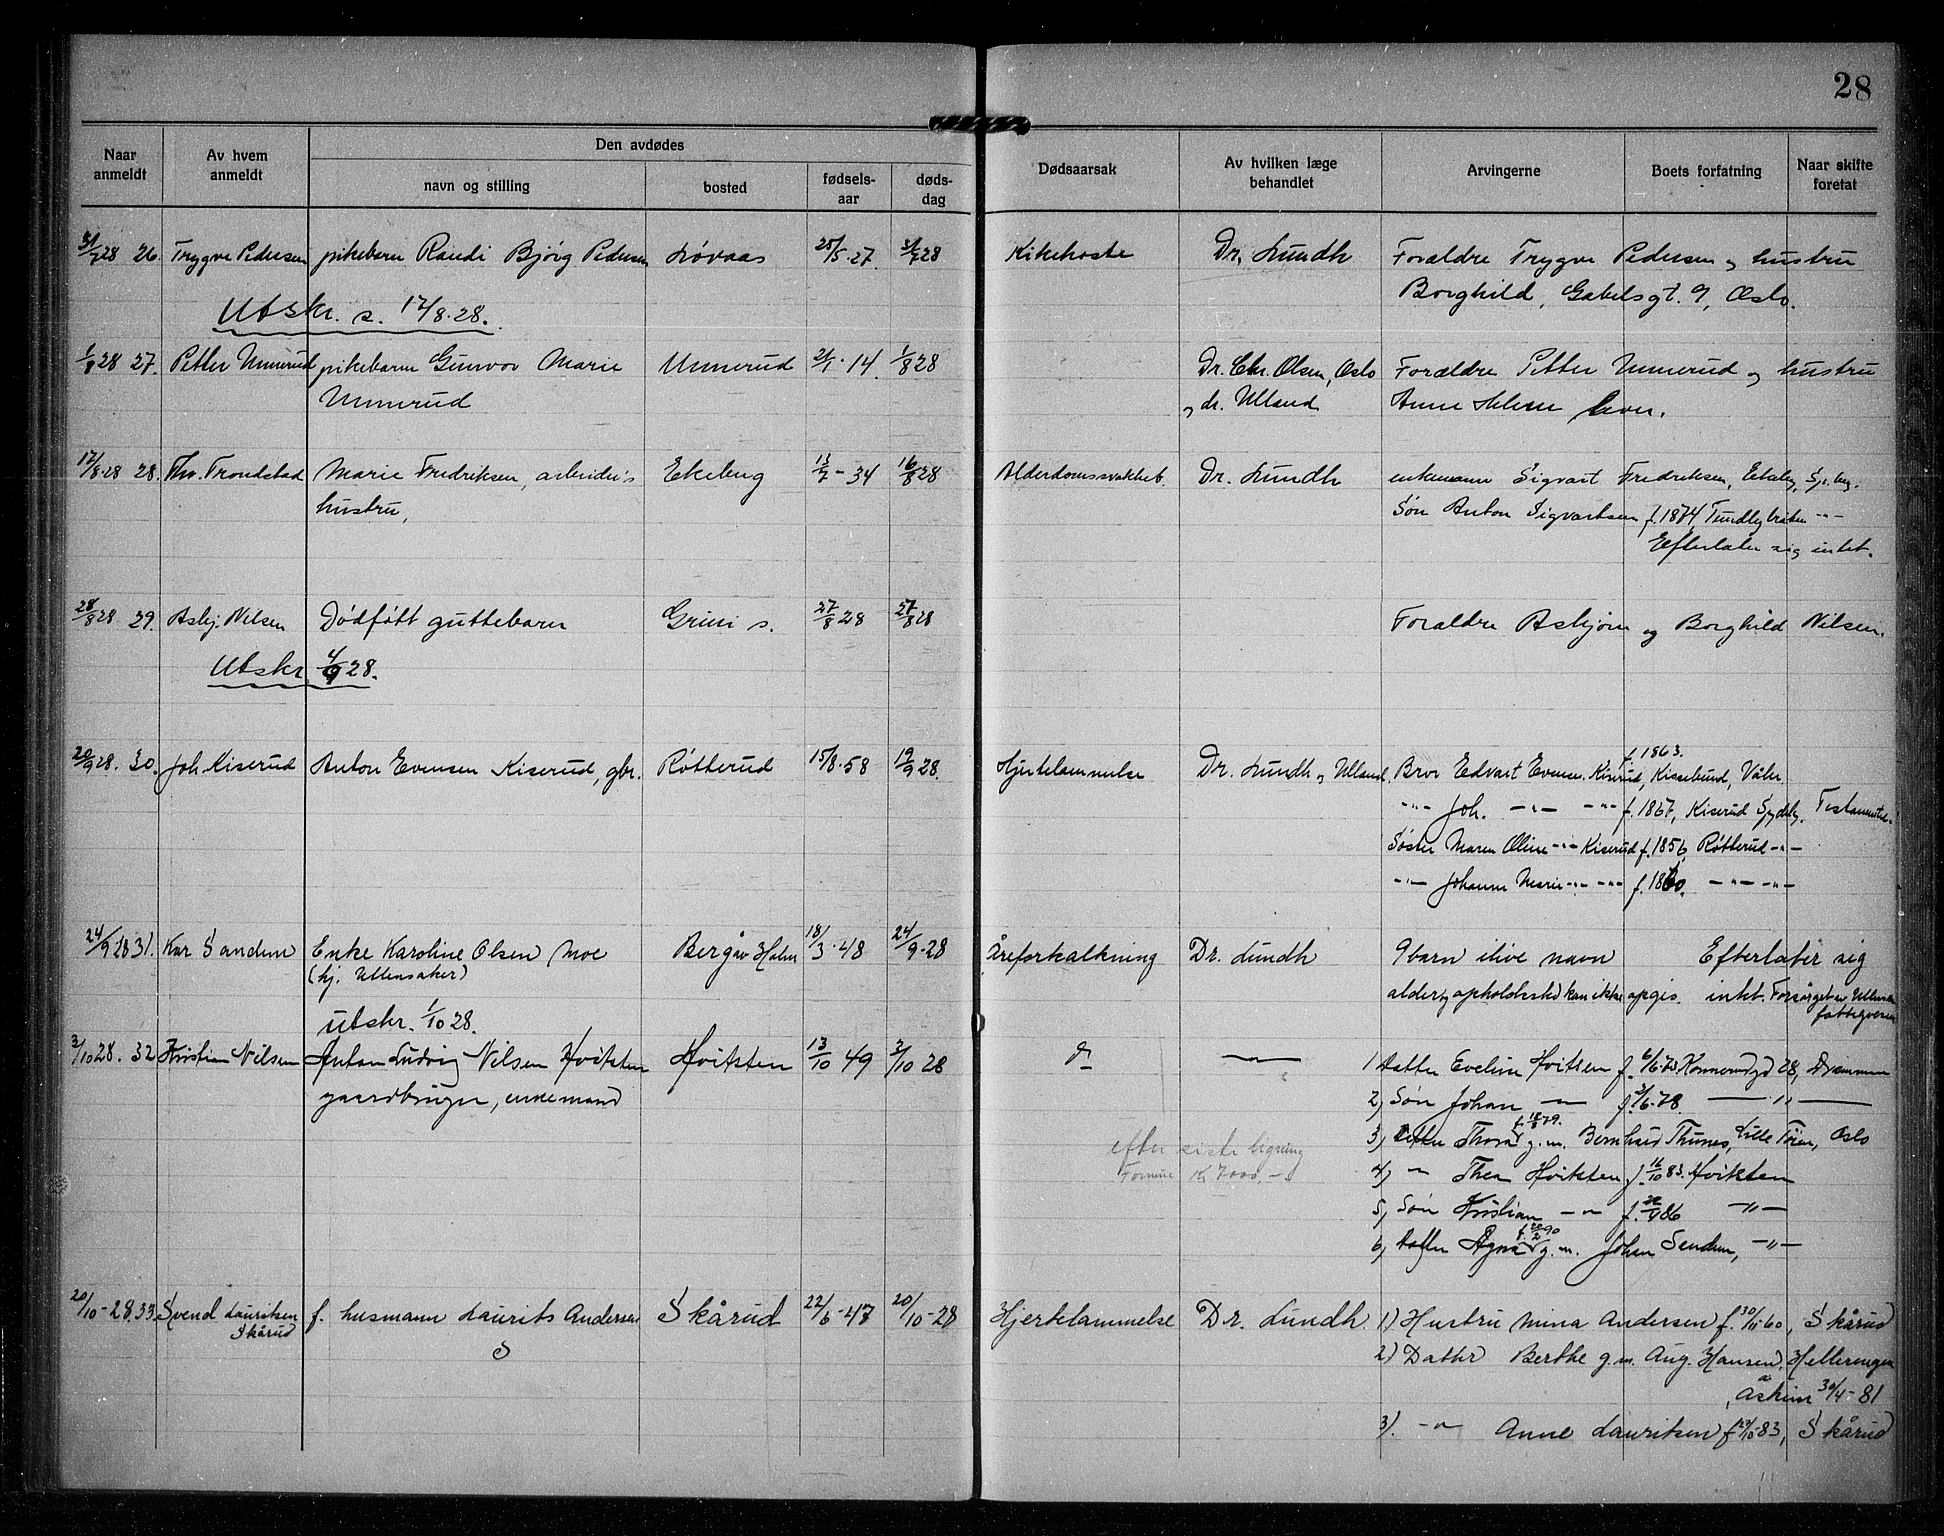 28
Naar anmeldt
Av hvem anmeldt
Den avdødes
navn og stilling
bosted
fødsels-aar
døds-dag
Dødsaarsak
Av hvilken læge behandlet
Arvingerne
Boets forfatning
Naar skifte foretat
31/7 28 26. Trygve Pedersen pikebarn Randi Bjørg Pedersen Løvaas 25/5.27. 31/7 28 Kikehoste Dr. Lundh Forældre Trygve Pedersen og hustru
Borghild, Gabelsgt. 9, Oslo.
Utskr. s. 17/8.28.
1/8 28 27. Petter Unnerud pikebarn Gunvor Marie Unnerud 21/1.14. 1/8 28 Dr. Chr. Olsen, Oslo Forældre Petter Unnerud og hustru
Unnerud og dr. Ulland Anne lever.
17/8.28 28. Thv. Trondstad Marie Fredriksen, arbeider's Ekeberg 13/7 - 34 16/8 28 Alderdomssvakhet. Dr. Lundh enkemann Sigvart Fredriksen, Ekeberg, Spberg.
hustru, Søn Anton Sigvartsen f. 1874 -"-
Efterlater sig intet.
28/8 28 29. Asbj. Nilsen Dødfødt guttebarn Grini s. 27/8 28 27/8 28 Forældre Asbjørn og Borghild Nilsen.
Utskr. 4/9 28.
20/9 28. 30. Joh. Kiserud Anton Evensen Kiserud, gbr. Røtterud 15/8.58 19/9 28. Hjertelammelse Dr. Lundh og Ulland. Bror Edvart Evensen Kiserud, f. 1863. Kissebund, Våler
-"- Joh. -"- -"- f. 1867, Kiserud Spydeberg. Testamente.
Søster Maren Oline -"- Kiserud f. 1856, Røtterud -"-
-"- Johanne Marie -"- -"- f. 1860. -"- -"-
24/9.28 31. Kar Sandem Enke Karoline Olsen Moe Bergåv Holm 18/3.48 24/9.28 Åreforkalkning Dr. Lundh 9 barn ilive navn Efterlater sig
(hj. Ullensaker) alder og opholdssted kan ikke opgis. intet. Forsørget av Ullensaker
fattigvesen
utskr. 1/10 28.
3/10 28. 32 Kristian Nilsen Anton Ludvig Nilsen Hvitsten Hvitsten 13/10 49 2/10 28 do -"- 1 Datter Eveline Hvitsen f. 6/6.73 Konnerudgd 28, Drammen
gaardbruger, enkemand 2) Søn Johan -"- f. 3/6.78 -"-
3) Datter Thora f. 18/8 79. g.m. Bernhard Thunes, Lille Tøien, Oslo
efter siste ligning
Formue K 7000,-
4) -"- Thea Hvitsten f. 16/10 83. Hvitsten
5) Søn Kristian -"- f. 86 -"-
6) Datter Agna f. 20/2 90 g.m. Johan Sendum, -"-
20/10-28. 33. Svend Lauritsen Skårud f. husmann Laurits Andersen Skårud 22/6-47 20/10-28 Hjertelammelse Dr. Lundh. 1) Hustru Mina Andersen f. 30/11-60, Skårud
S 2) Datter Berthe g.m. Aug. Hansen, Hellerengen
, Askim 30/4-81
3). -"- Anne Lauritsen f. 29/10-83, Skårud